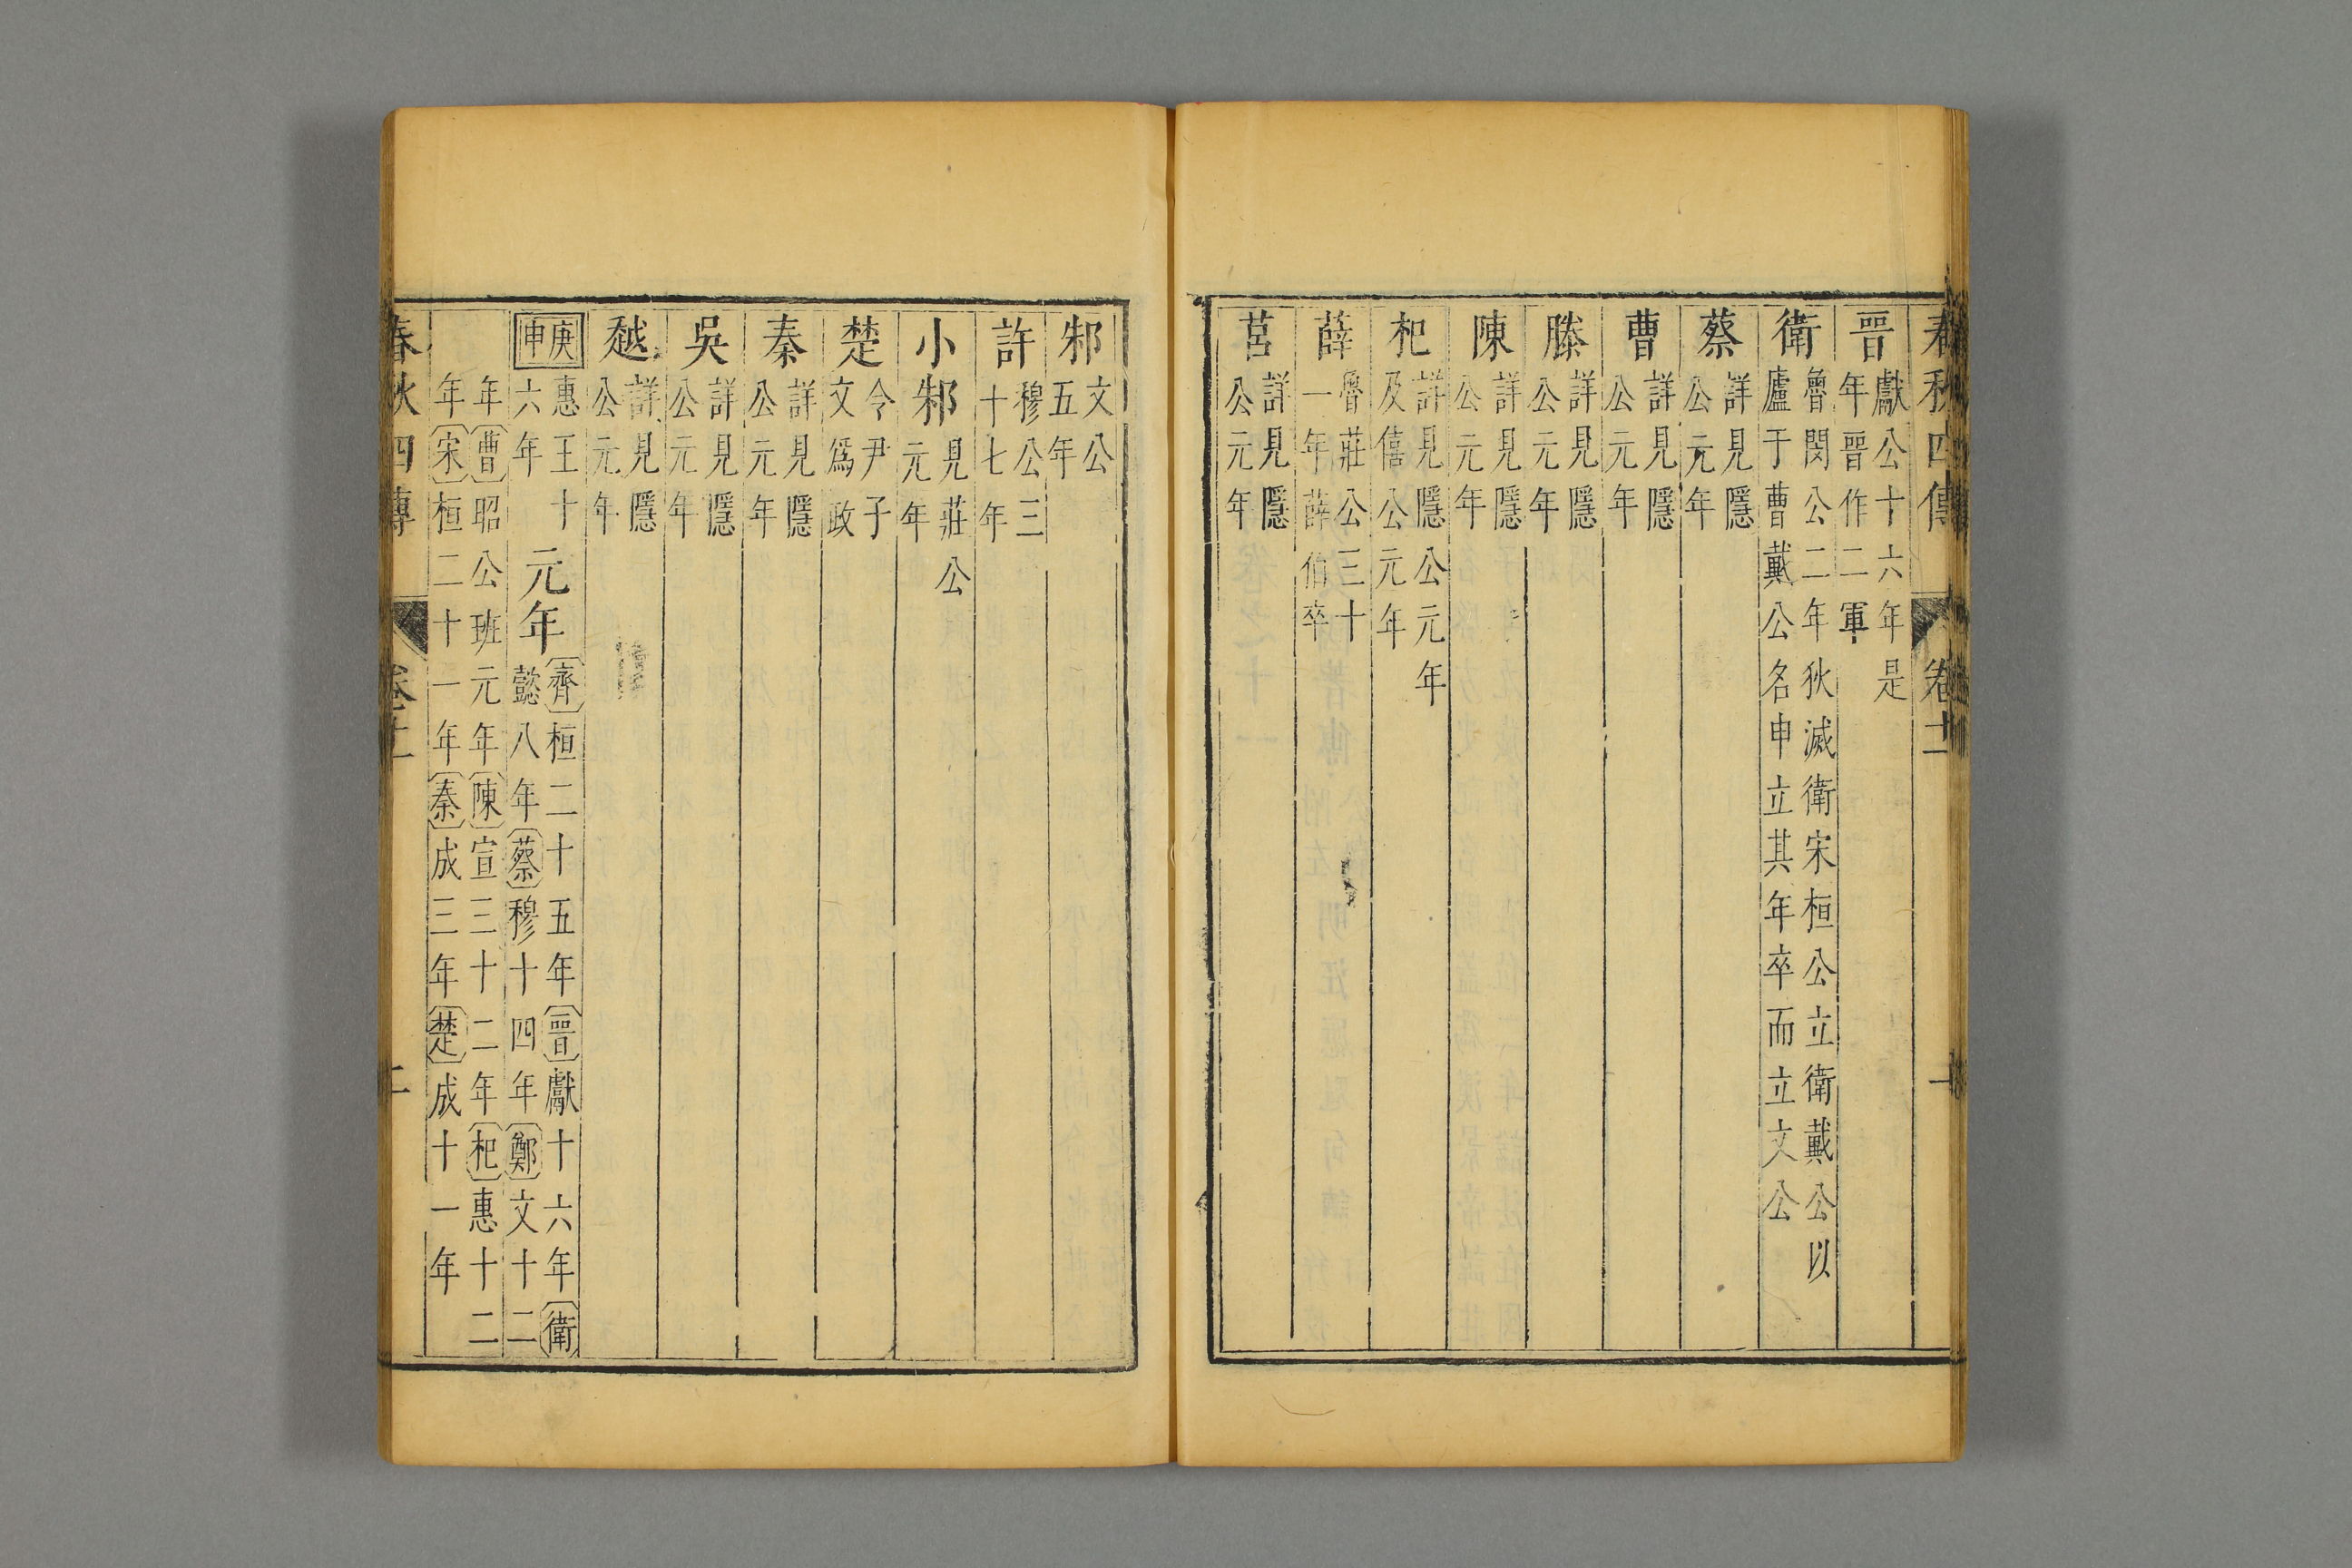 春秋四傳 卷十一 一
晉 獻公十六年是年晉作二軍
衛 魯閔公二年狄滅衛宋桓公立衛戴公以廬于曹戴公名申立其年卒而立文公
蔡 詳見隱公元年
曹 詳見隱公元年
滕 詳見隱公元年
陳 詳見隱公元年
杞 詳見隱公元年及僖公元年
薛 魯莊公三十一年薛伯卒
莒 詳見隱公元年
邾 文公五年
許 穆公三十七年
小邾 見莊公元年
楚 令尹子文爲政
秦 詳見隱公元年
吳 詳見隱公元年
越 詳見隱公元年
庚申 惠王十六年 元年 齊桓二十五年晉獻十六年衛懿八年蔡穆十四年鄭文十二
年曹昭公班元年陳宣三十二年杞惠十二年宋桓二十一年秦成三年楚成十一年
春秋四傳 卷十一 二